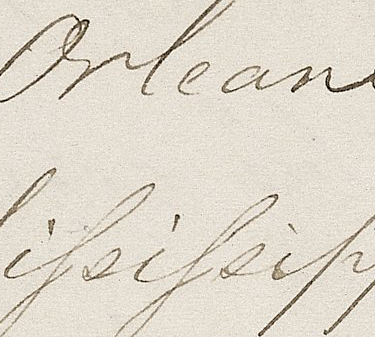 Orlean
ississip